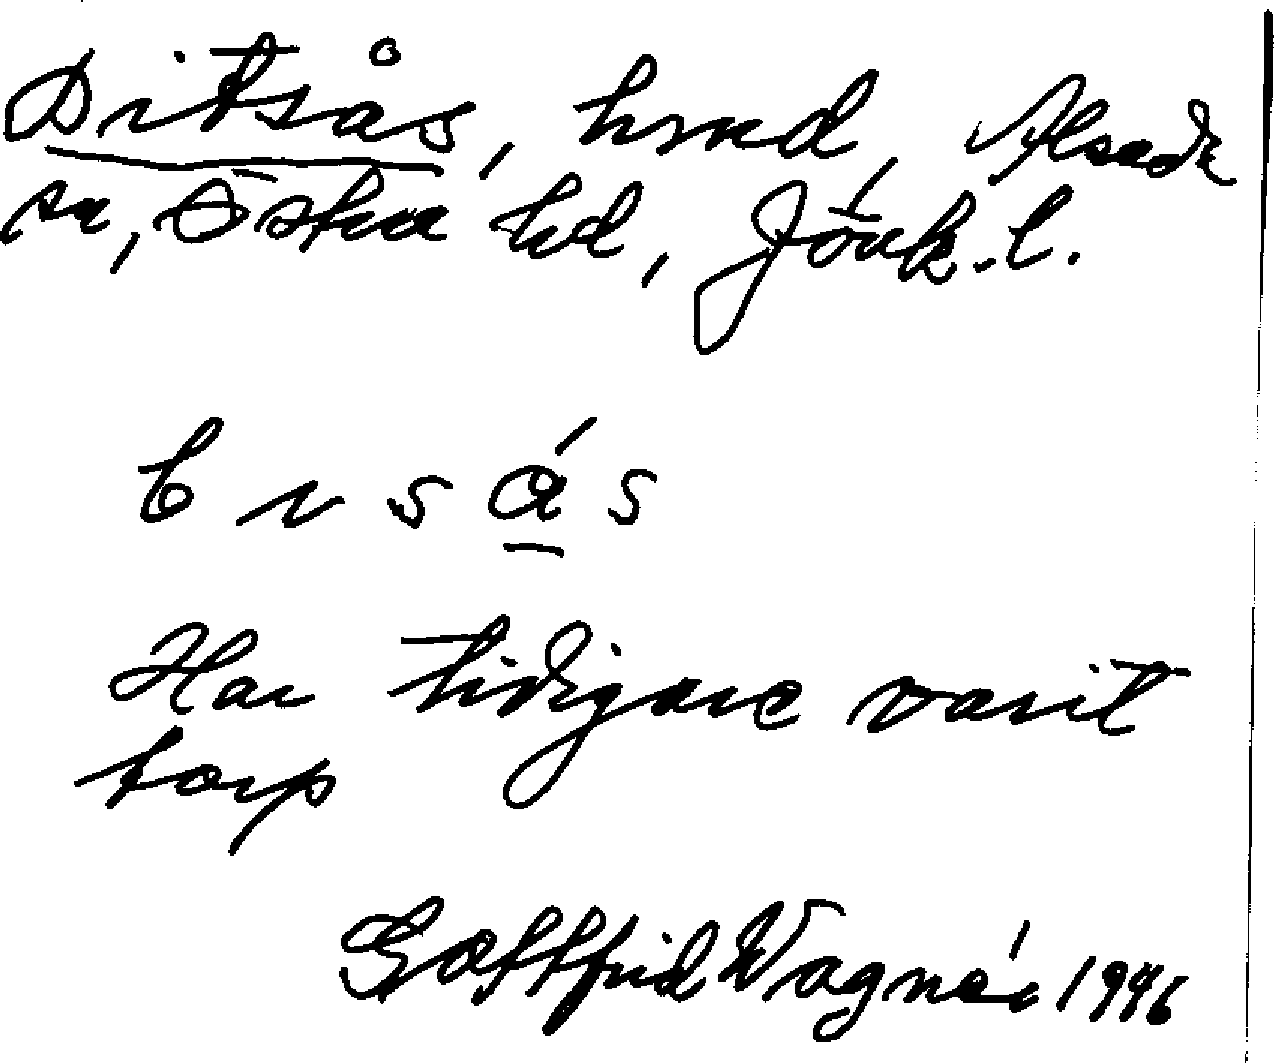 Ditsås, hmd, Alseda
sn, Östra hd, Jönk. l.
Har tidigare varit
torp
Gottfrid Wagnér 1946